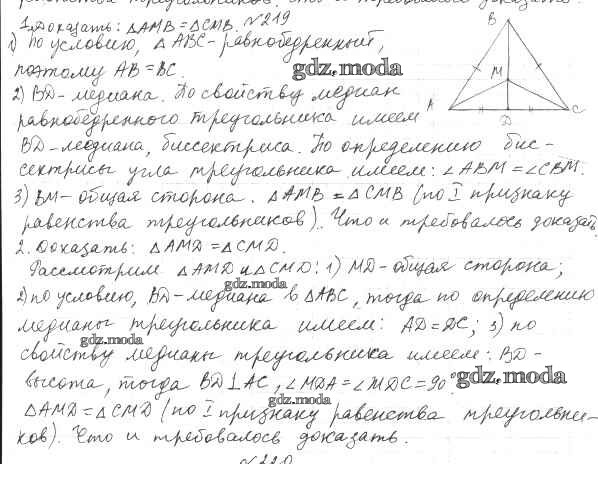 1. Доказать: △AMB = △CMB. №219
1) По условию, △ABC - равнобедренный,
поэтому AB = BC.
gdz.moda
2) BD - медиана. По свойству медиан
равнобедренного треугольника имеем
BD - медиана, биссектриса. По определению бис-
сектрисы угла треугольника имеем: ∠ABM = ∠CBM.
3) BM - общая сторона. △AMB = △CMB (по I признаку
равенства треугольников). Что и требовалось доказать.
B
M
A
D
C
2. Доказать: △AMD = △CMD.
Рассмотрим △AMD и △CMD: 1) MD - общая сторона;
gdz.moda
2) по условию, BD - медиана в △ABC, тогда по определению
медианы треугольника имеем: AD = DC; 3) по
gdz.moda
свойству медианы треугольника имеем: BD -
высота, тогда BD ⊥ AC, ∠MDA = ∠MDC = 90°
gdz.moda
gdz.moda
△AMD = △CMD (по I признаку равенства треугольни-
ков). Что и требовалось доказать.
№220